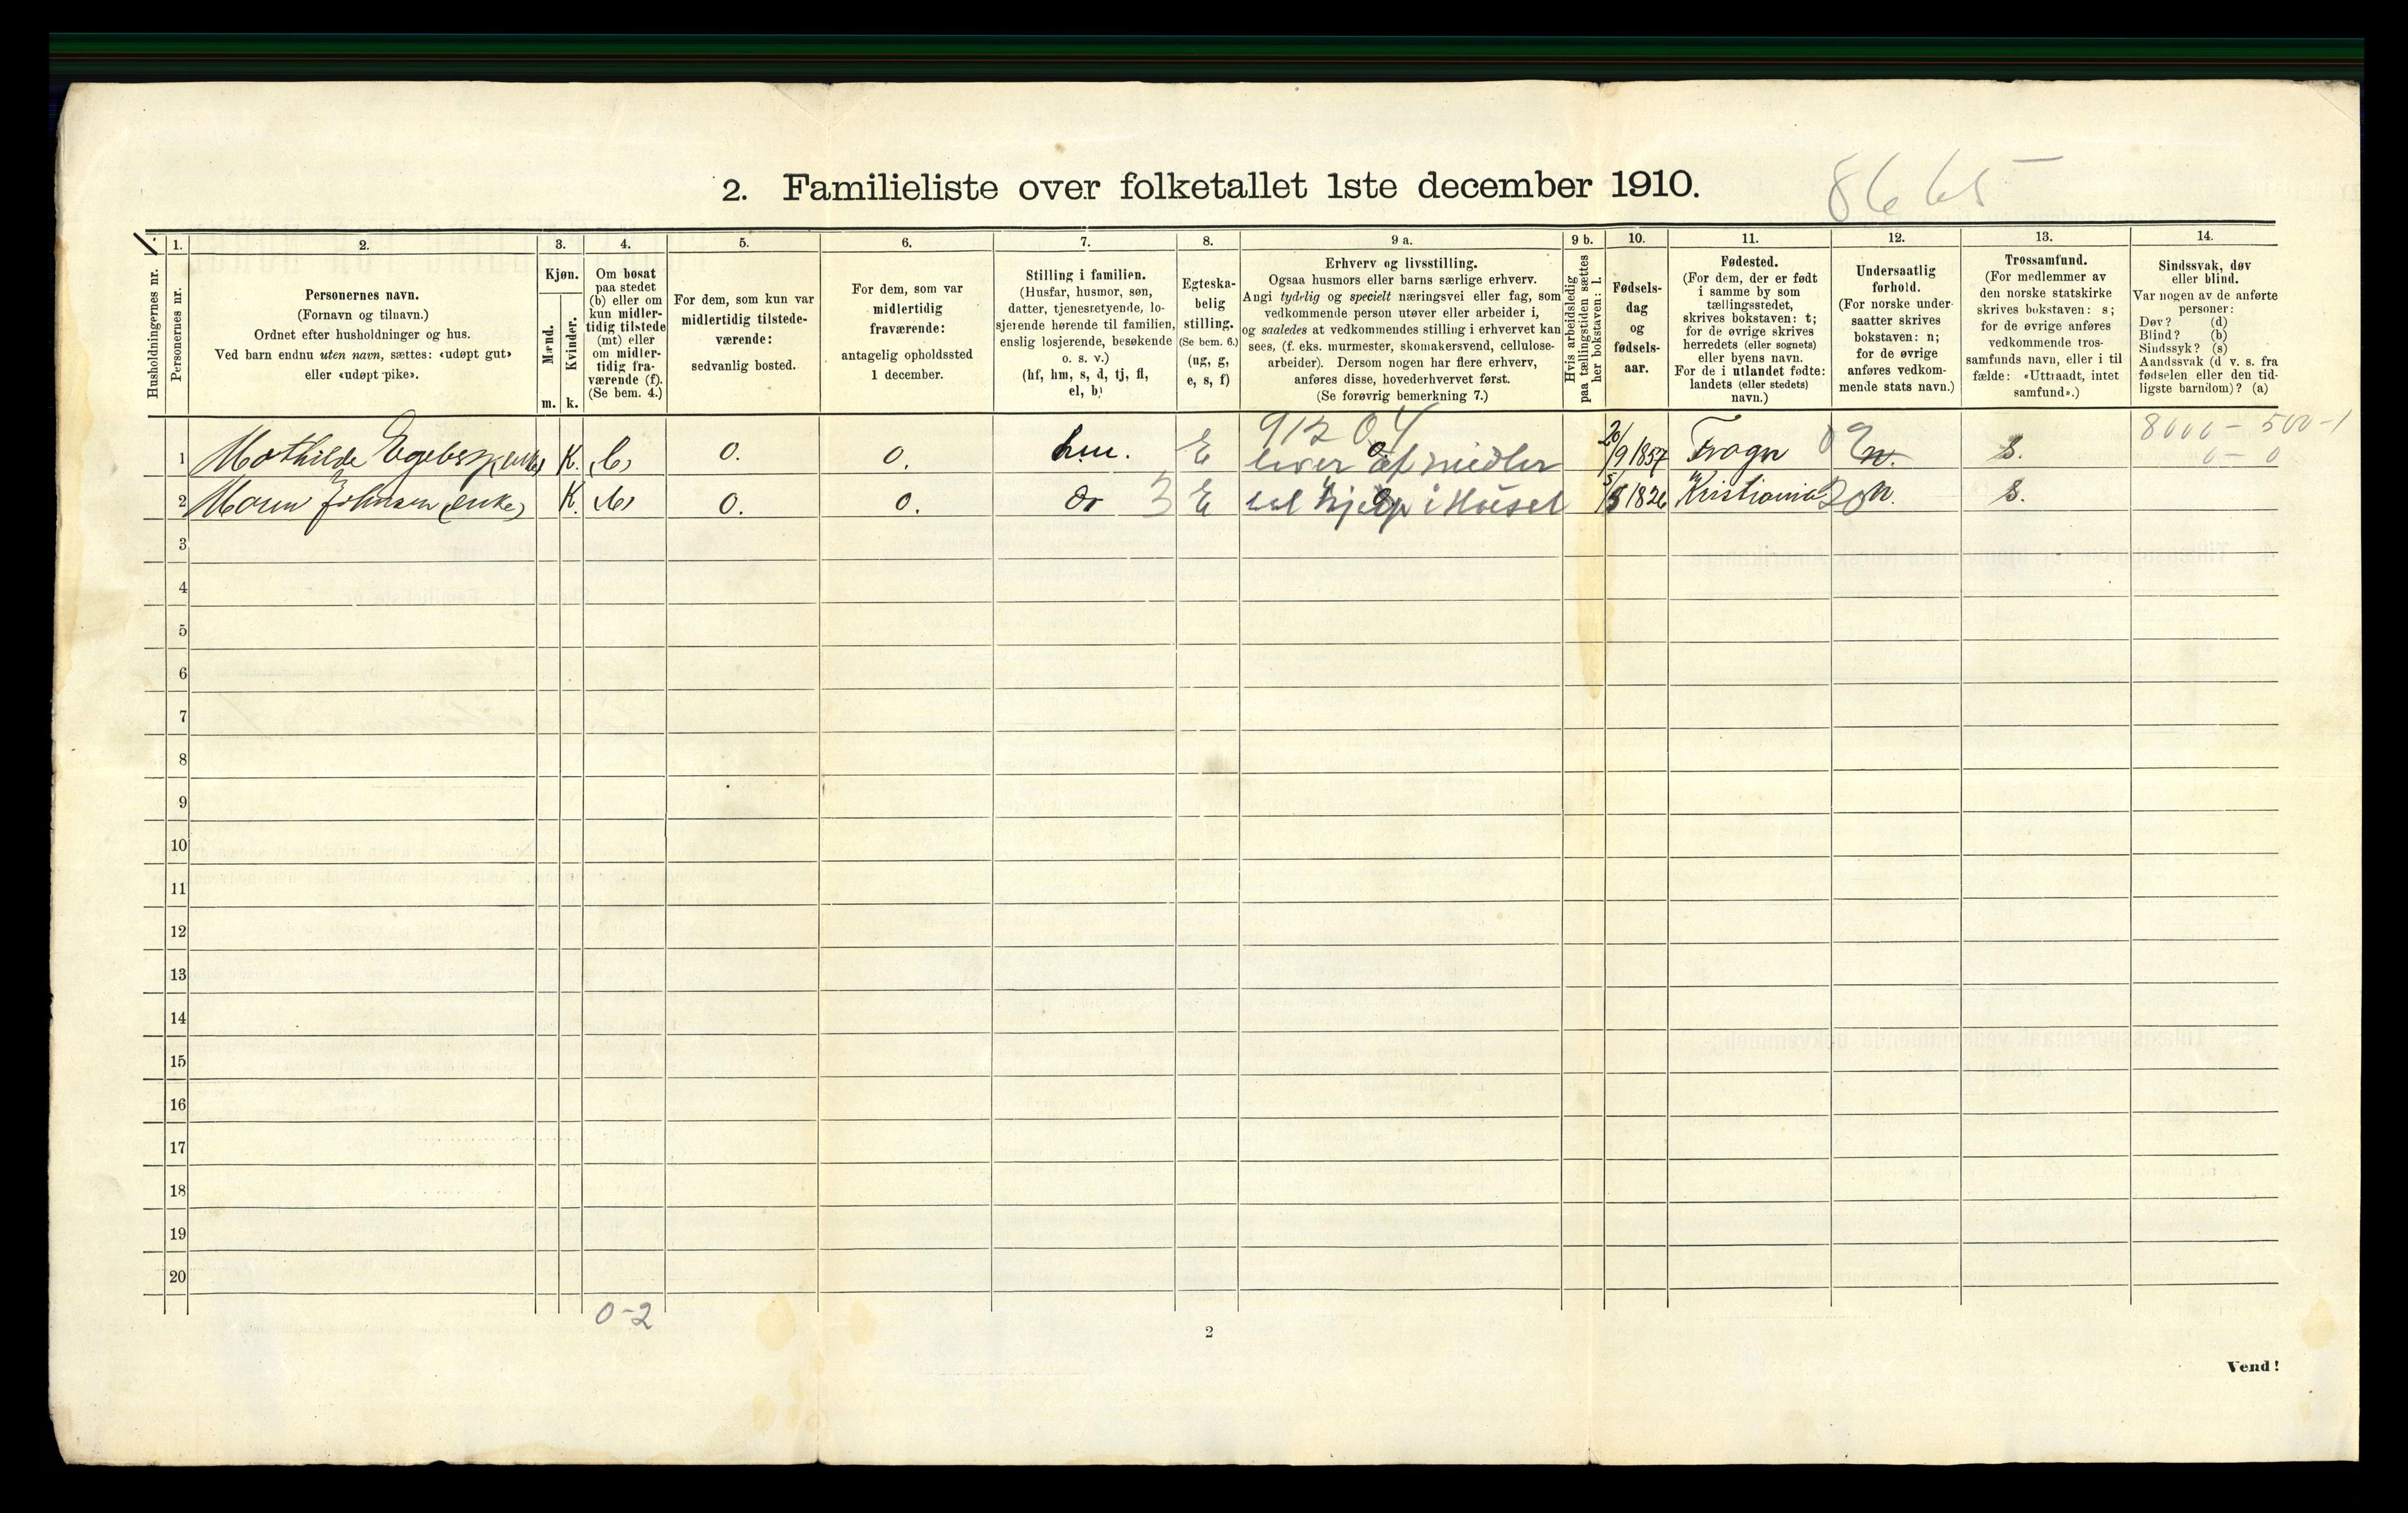 2. Familieliste over folketallet 1ste december 1910.
8665
Husholdningernes nr.
1.
Personernes nr.
2.
Personernes navn.
(Fornavn og tilnavn.)
Ordnet efter husholdninger og hus.
Ved barn endnu uten navn, sættes: «udøpt gut»
eller «udøpt pike».
3.
Kjøn.
Mænd.
Kvinder.
m. k.
4.
Om bosat
paa stedet
(b) eller om
kun midler-
tidig tilstede
(mt) eller
om midler-
tidig fra-
værende (f).
(Se bem. 4.)
5.
For dem, som kun var
midlertidig tilstede-
værende:
sedvanlig bosted.
6.
For dem, som var
midlertidig
fraværende:
antagelig opholdssted
1 december.
7.
Stilling i familien.
(Husfar, husmor, søn,
datter, tjenestetyende, lo-
sjerende hørende til familien,
enslig losjerende, besøkende
o. s. v.)
(hf, hm, s, d, tj, fl,
el, b)
8.
Egteska-
belig
stilling.
(Se bem. 6.)
(ug, g,
e, s, f)
9 a.
Erhverv og livsstilling.
Ogsaa husmors eller barns særlige erhverv.
Angi tydelig og specielt næringsvei eller fag, som
vedkommende person utøver eller arbeider i,
og saaledes at vedkommendes stilling i erhvervet kan
sees, (f. eks. murmester, skomakersvend, cellulose-
arbeider). Dersom nogen har flere erhverv,
anføres disse, hovederhvervet først.
(Se forøvrig bemerkning 7.)
9 b.
Hvis arbeidsledig
paa tællingstiden sættes
her bokstaven: l.
10.
Fødsels-
dag
og
fødsels-
aar.
11.
Fødested.
(For dem, der er født
i samme by som
tællingsstedet,
skrives bokstaven: t;
for de øvrige skrives
herredets (eller sognets)
eller byens navn.
For de i utlandet fødte:
landets (eller stedets)
navn.)
12.
Undersaatlig
forhold.
(For norske under-
saatter skrives
bokstaven: n;
for de øvrige
anføres vedkom-
mende stats navn.)
13.
Trossamfund.
(For medlemmer av
den norske statskirke
skrives bokstaven: s;
for de øvrige anføres
vedkommende tros-
samfunds navn, eller i til
fælde: «Uttraadt, intet
samfund».)
14.
Sindssvak, døv
eller blind.
Var nogen av de anførte
personer:
Døv? (d)
Blind? (b)
Sindssyk? (s)
Aandssvak (d v. s. fra
fødselen eller den tid-
ligste barndom)? (a)
91204
8000 - 500 - 1
0 - 0
1 Mathilde K. b 0. 0. hm. E lever af midler 20/9 1857 Frogn n. s.
2 Maren Johnsen (enke) K. b 0. 0. 3 E hjelp i Huset 5/5 1826 Kristiania 20 n. s.
3
4
5
6
7
8
9
10
11
12
13
14
15
16
17
18
19
20
0-2
2
Vend!